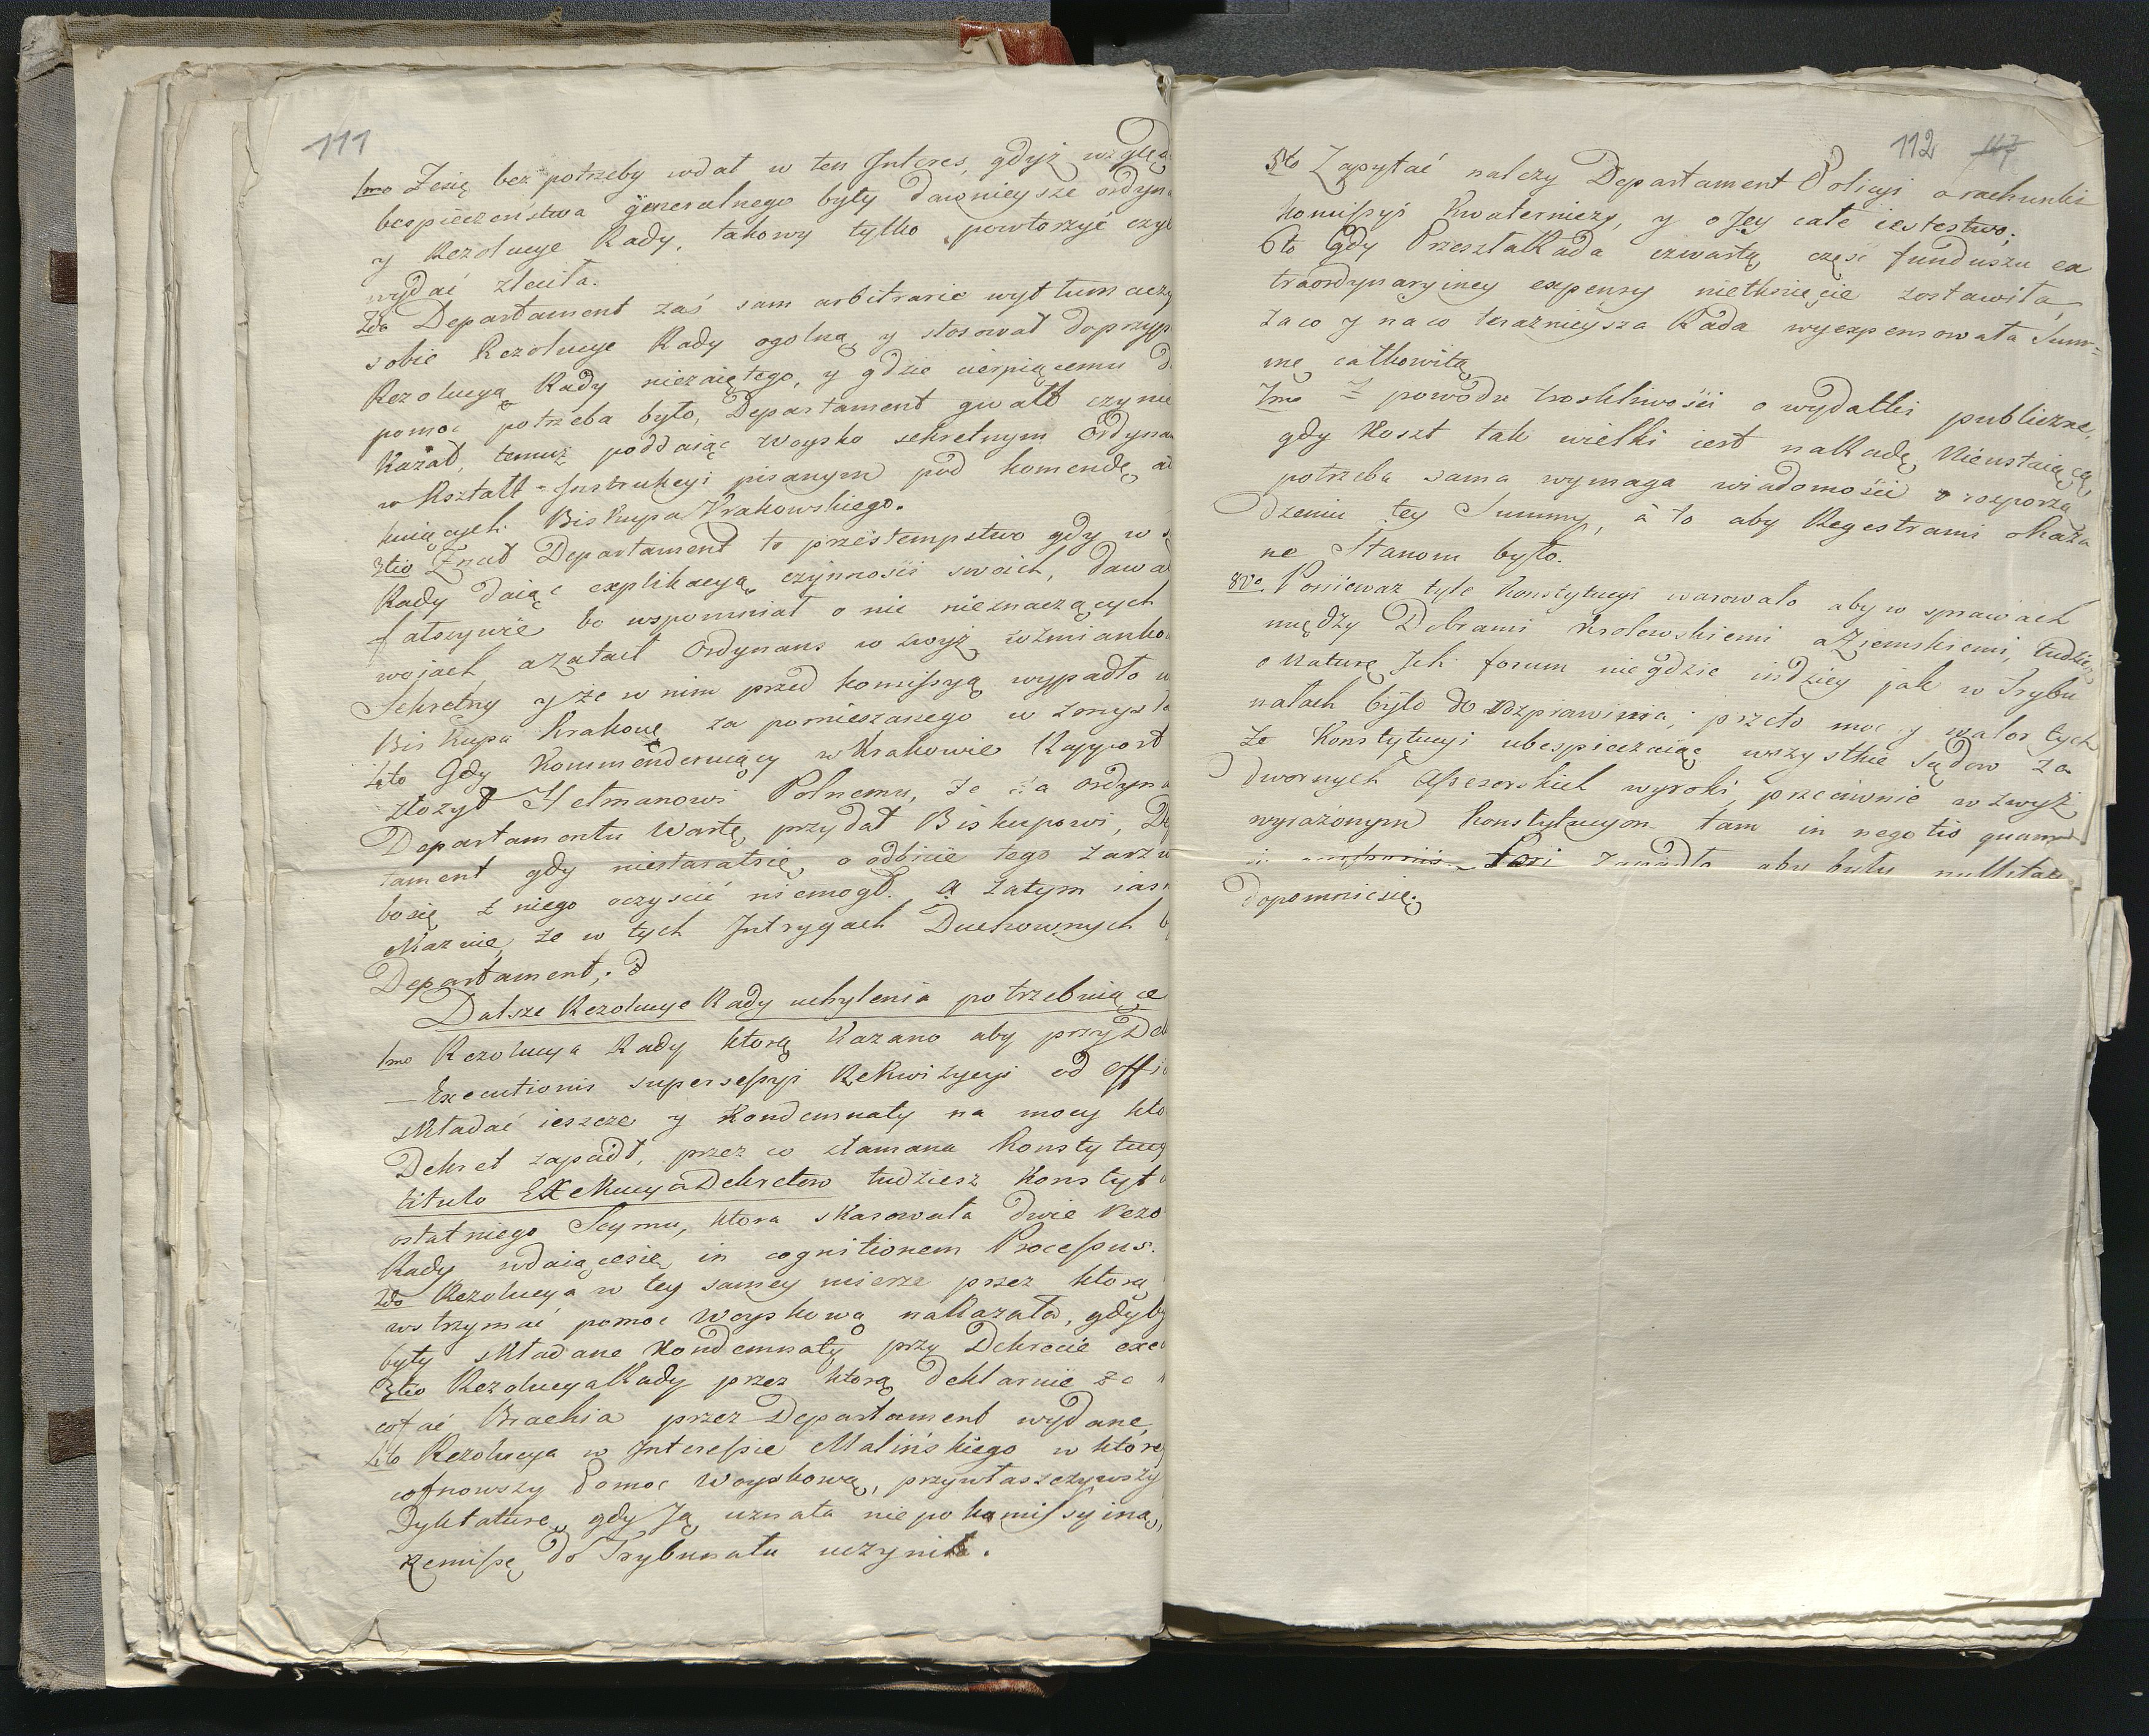 111
1mo Zesię bez potrzeby wdał w ten Interes, gdyż wzglę
bespieczeństwa generalnego były dawnieysze ordyna
y Rezolucye Rady, takowy tylko powtorzyć czyl
wydać zleciła.
2do Departament zaś sam arbitrarie wytłumaczy
sobie Rezolucye Rady ogolną y stosował do przyp
Rezolucyą Rady niezaiętego, y gdzie cierpiącemu d
pomoc potrzeba było, Departament gwałt czynić
Kazał, temuż poddaiąc Woysko sekretnym Ordyna
w Kształt-Instrukcyi pisanym pod komendę
kuiących Biskupa Krakowskiego.
3tio Znał Departament to przestempstwo gdy w
Rady daiąc explikacyą czynności swoich, dawa
fałszywie bo wspomniał o nic nieznaczących
wojach, azataił Ordynans wzwyż wzmianko
Sekretny y że w nim przed Komissyą wypadło u
Biskupa Krakowę za pomieszanego w zmysła
4to Gdy Kommenderuiący w Krakowie Rapport
złożył Hetmanowi Polnemu, że za ordyna
Departamentu Wartę przydał Biskupowi, De
tament gdy niestarałsię o odbicie tego zarzu
bosię z niego oczyścić niemogł. a zatym ias
Maznie, że w tych Intrygach Duchownych b
Departament;
Dalsze Rezolucye Rady uchylenia potrzebuiące
1mo Rezolucya Rady którą Kazano aby przy De
Executionis supersessyi Rekwizycyi od offi
składać ieszcze y Kondemnaty na mocy kto
Dekret zapadł, przez co złamana Konstytucy
titulo Exekucya Dekretow tudziesz Konstyt
ostatniego Seymu, ktora skasowała dwie Rezo
Rady wdaiącesię in cognitionem Processus.
2do Rezolucya w tey samey mierze przez ktorą
wstrzymać pomoc Woyskową nakazała, gdyby
były składane Kondemnaty przy Dekrecie exe
3tio Rezolucya Rady przez ktorą deklaruie że
cofać Brachia przez Departament wydane,
4to Rezolucya w Interessie Malińskiego w ktorey
cofnowszy Pomoc Woyskową, przywłaszczywszy
Dyktaturę, gdy Ją uznała niepokomissyiną,
Remissę do Trybunału uczyniła.
112 117
5to Zapytać należy Departament Policyi o rachunki
Komissyi Kwaterniczy, y o Jey całe iestestwo;
6to Gdy Przeszła Rada czwartą część funduszu ex
traordynaryiney expensy nietknięcie zostawiła,
zaco y naco teraznieysza Rada wyexpensowała Sum=
mę całkowitą
7mo Z powodu troskliwości o wydatki publiczne,
gdy Koszt tak wielki iest na Radę Nieustaiącą,
potrzeba sama wymaga wiadomości o rosporzą
dzeniu tey Summy, a to aby Regestrami okaza
ne Stanom było.
8vo Ponieważ tyle Konstytucyi warowało aby w sprawach
między Dobrami Krolewskiemi a Ziemskiemi, tudziesz
o Naturę Ich forum niegdzie indziey jak w Trybu
nałach było do rozprawienia; przeto moc y walor tych
że Konstytucyi ubespieczaiąc wszystkie Sądow Za
dwornych Assesorskich wyroki przeciwnie wzwyż
wyrażonym Konstytucyom tam in negotio quam
fori zapadło aby były nullitas
dopomniesię.